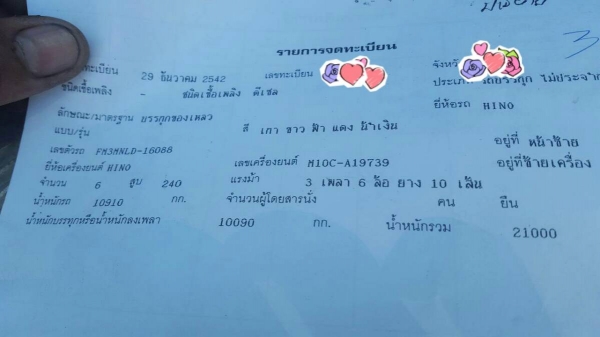 รายการจดทะเบียน
ทะเบียน 29 ธันวาคม 2542 เลขทะเบียน จังหวั
ชนิดเชื้อเพลิง - ชนิดเชื้อเพลิง ดีเซล ประเภท ไม่ประจำ
ลักษณะ/มาตรฐาน บรรทุกของเหลว ยี่ห้อรถ HINO
แบบ/รุ่น สี เทา ขาว ฟ้า แดง น้ำเงิน
เลขตัวรถ FM3MNLD-16088 อยู่ที่ หน้าซ้าย
ยี่ห้อเครื่องยนต์ HINO เลขเครื่องยนต์ M10C-A19739 อยู่ที่ซ้ายเครื่อง
จำนวน 6 สูบ 240 แรงม้า 3 เพลา 6 ล้อ ยาง 10 เส้น
น้ำหนักรถ 10910 กก. จำนวนผู้โดยสารนั่ง คน ยืน
น้ำหนักบรรทุกหรือน้ำหนักลงเพลา 10090 กก. น้ำหนักรวม 21000
3